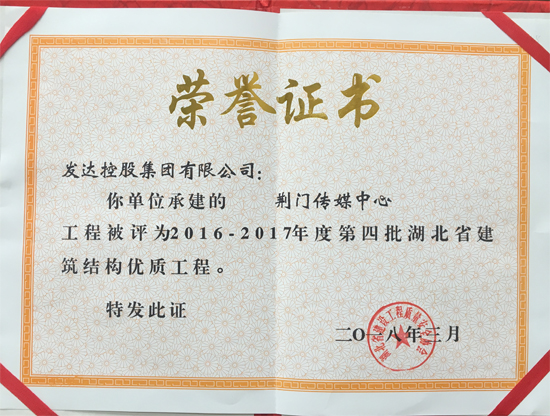 荣誉证书
发达控股集团有限公司：
你单位承建的 荆门传媒中心
工程被评为2016-2017年度第四批湖北省建
筑结构优质工程。
特发此证
二〇一八年三月
湖北省建设工程质量安全协会